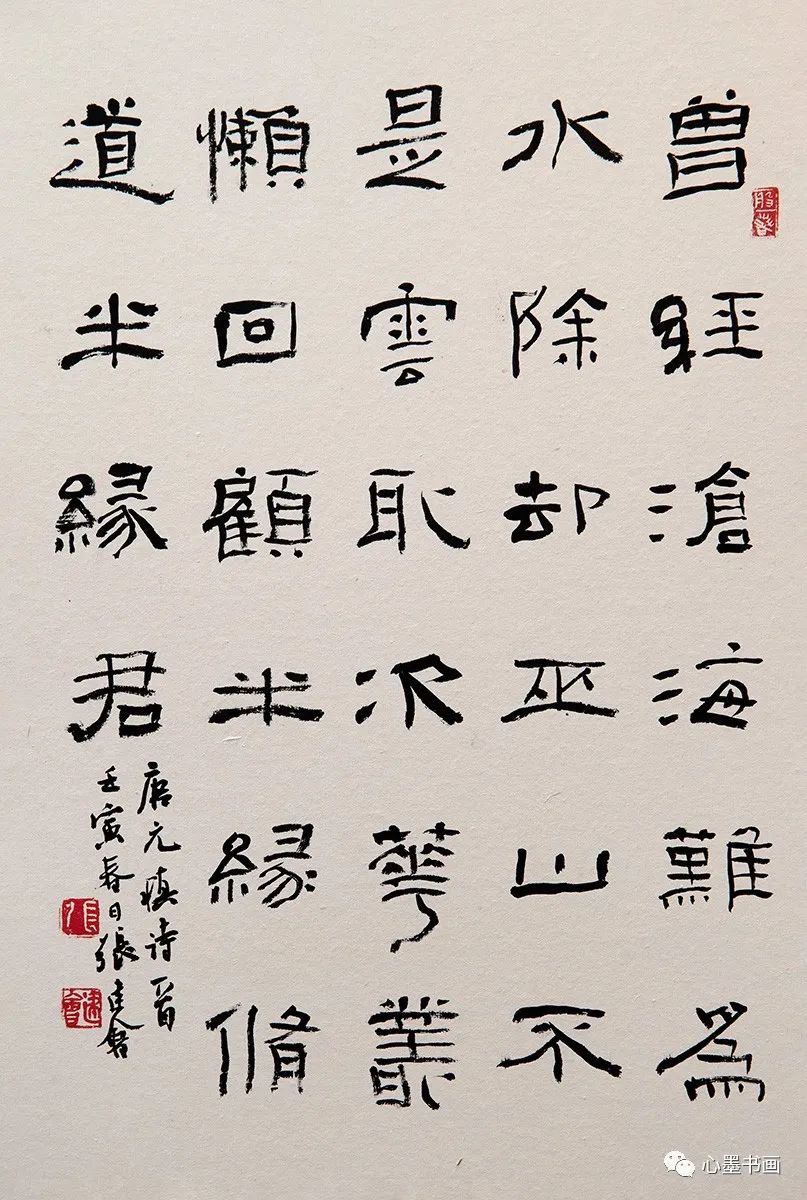 曾經滄海難為
水除却巫山不
是雲取次華叢
懶回顧半緣脩
道半緣君
唐元稹诗一首
壬寅春日張建會
張
建會
心墨书画